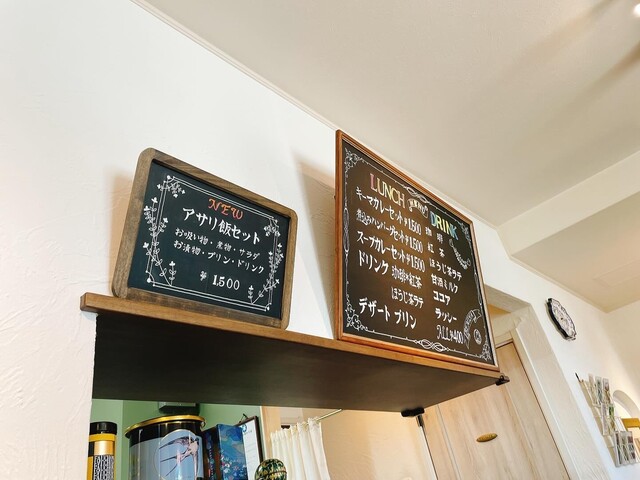 NEW
アサリ飯セット
お吸い物・煮物・サラダ
お漬物・プリン・ドリンク
¥ 1,500
LUNCH MENU
キーマカレーセット ¥1,500
煮込みハンバーグセット ¥1,500
スープカレーセット ¥1,500
ドリンク 珈琲・紅茶
ほうじ茶ラテ
デザート プリン
DRINK
珈琲
紅茶
ほうじ茶ラテ
甘酒ミルク
ココア
ラッシー
ALL ¥400